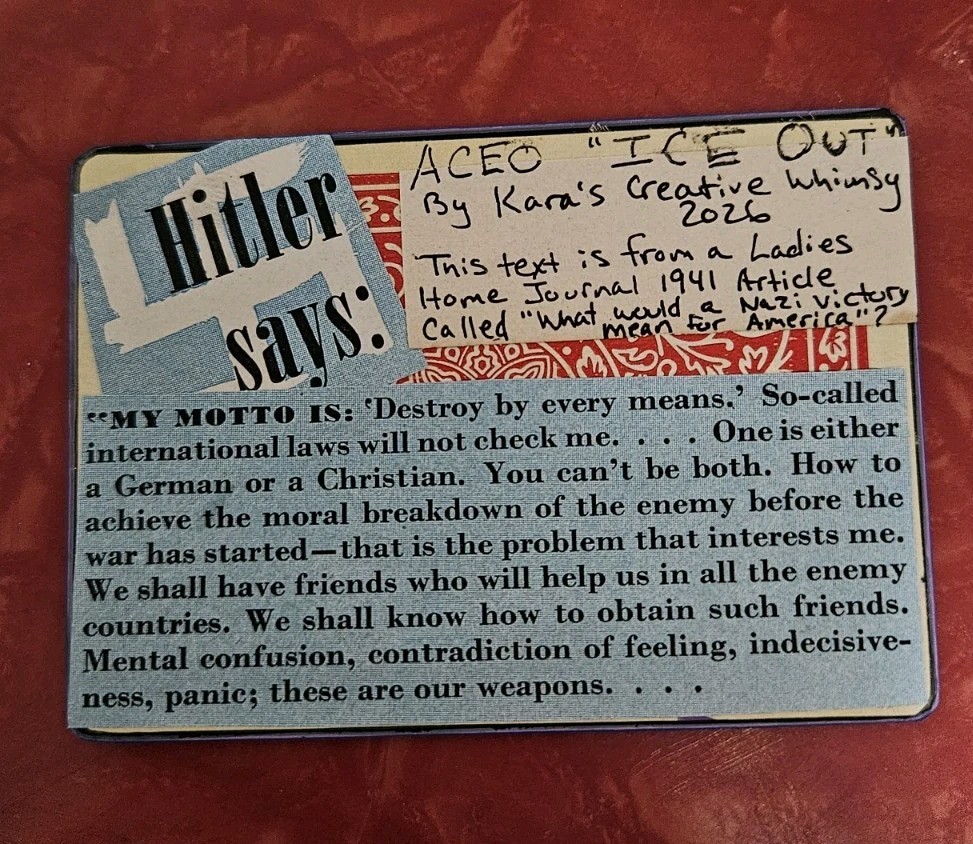 Hitler
says:
ACEO "ICE OUT"
By Kara's Creative Whimsy
2026
This text is from a Ladies
Home Journal 1941 Article
Called "What would a Nazi victory
mean for America"?
"MY MOTTO IS: 'Destroy by every means.' So-called
international laws will not check me. . . . One is either
a German or a Christian. You can't be both. How to
achieve the moral breakdown of the enemy before the
war has started—that is the problem that interests me.
We shall have friends who will help us in all the enemy
countries. We shall know how to obtain such friends.
Mental confusion, contradiction of feeling, indecisive-
ness, panic; these are our weapons. . . .